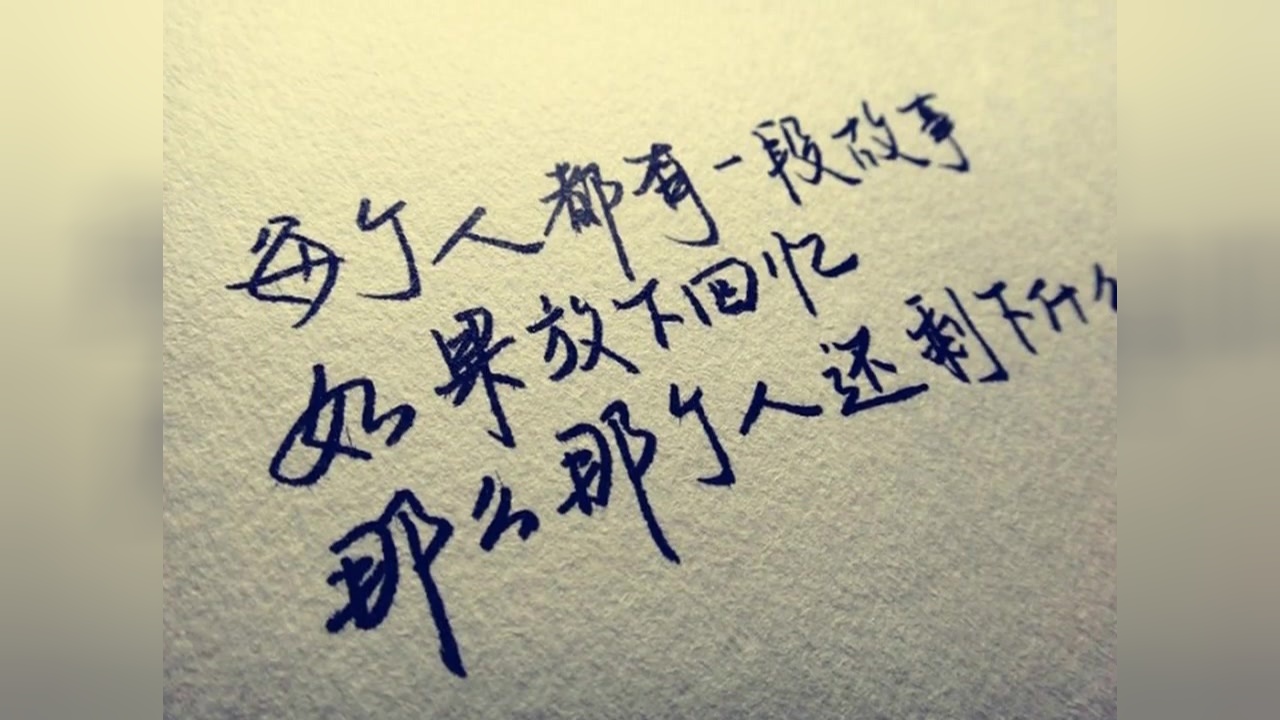 每个人都有一段故事
如果放下回忆
那么那个人还剩下什